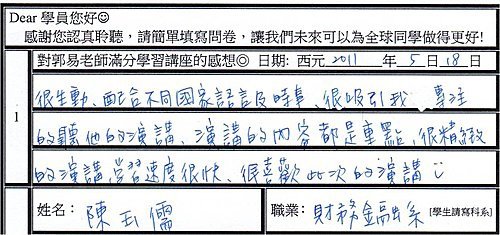 Dear 學員您好☺
感謝您認真聆聽，請簡單填寫問卷，讓我們未來可以為全球同學做得更好!
對郭易老師滿分學習講座的感想◎ 日期: 西元 2011 年 5 月 18 日
1
很生動、配合不同國家語言及時事、很吸引我 專注
的聽他的演講、演講的內容都是重點、很精緻
的演講，學習速度很快、很喜歡此次的演講
姓名： 陳玉儒
職業： 財務金融系 [學生請寫科系]